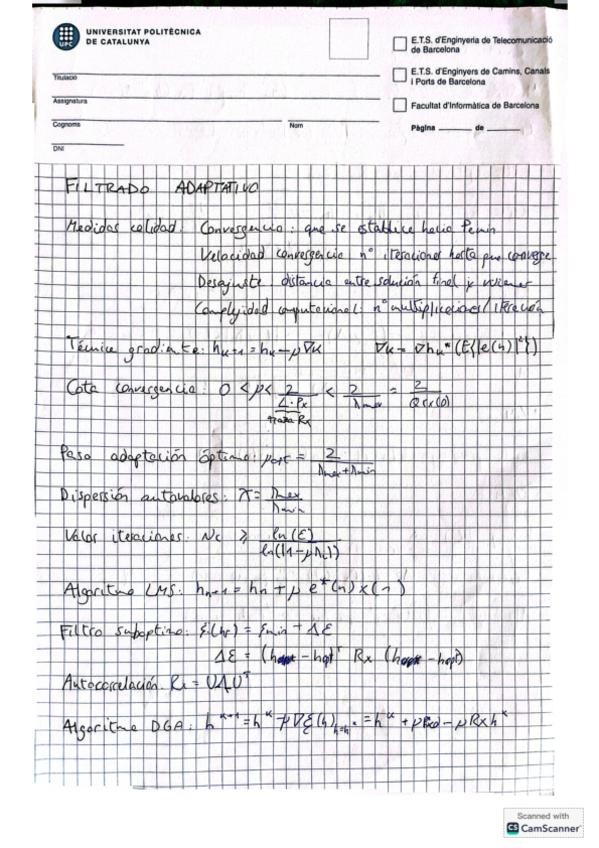 UNIVERSITAT POLITÈCNICA
DE CATALUNYA
UPC
E.T.S. d'Enginyeria de Telecomunicació
de Barcelona
E.T.S. d'Enginyers de Camins, Canals
i Ports de Barcelona
Facultat d'Informàtica de Barcelona
Titulació
Assignatura
Cognoms Nom
Pàgina de
DNI
FILTRADO ADAPTATIVO
Medidas calidad: Convergencia: que se establece hacia ξmin
Velocidad convergencia nº iteraciones hasta que converge
Desajuste: distancia entre solución final y wiener
Complejidad computacional: nº multiplicaciones/iteración
Técnica gradiente: hₖ₊₁ = hₖ - μ∇ₖ ∇ₖ = ∇hₖ* (E{|e(n)|²})
Cota convergencia: 0 < μ < 2/(L·Px) < 2/λmax = 2/(Q rx(0))
traza Rx
Paso adaptación óptimo: μopt = 2/(λmax+λmin)
Dispersión autovalores: χ = λmax/λmin
Valor iteraciones: Nc ≥ ln(ε)/ln(|1-μλi|)
Algoritmo LMS: hₙ₊₁ = hₙ + μ e*(n) x(n)
Filtro suboptimo: ξ(h) = ξmin + Δε
Δε = (h - hopt)ᵀ Rx (h - hopt)
Autocorrelación. Rx = UΛUᵀ
Algoritmo DGA: hᵏ⁺¹ = hᵏ - μ∇ξ(h)|h=hᵏ = hᵏ + μ - μRxhᵏ
Scanned with
CS CamScanner